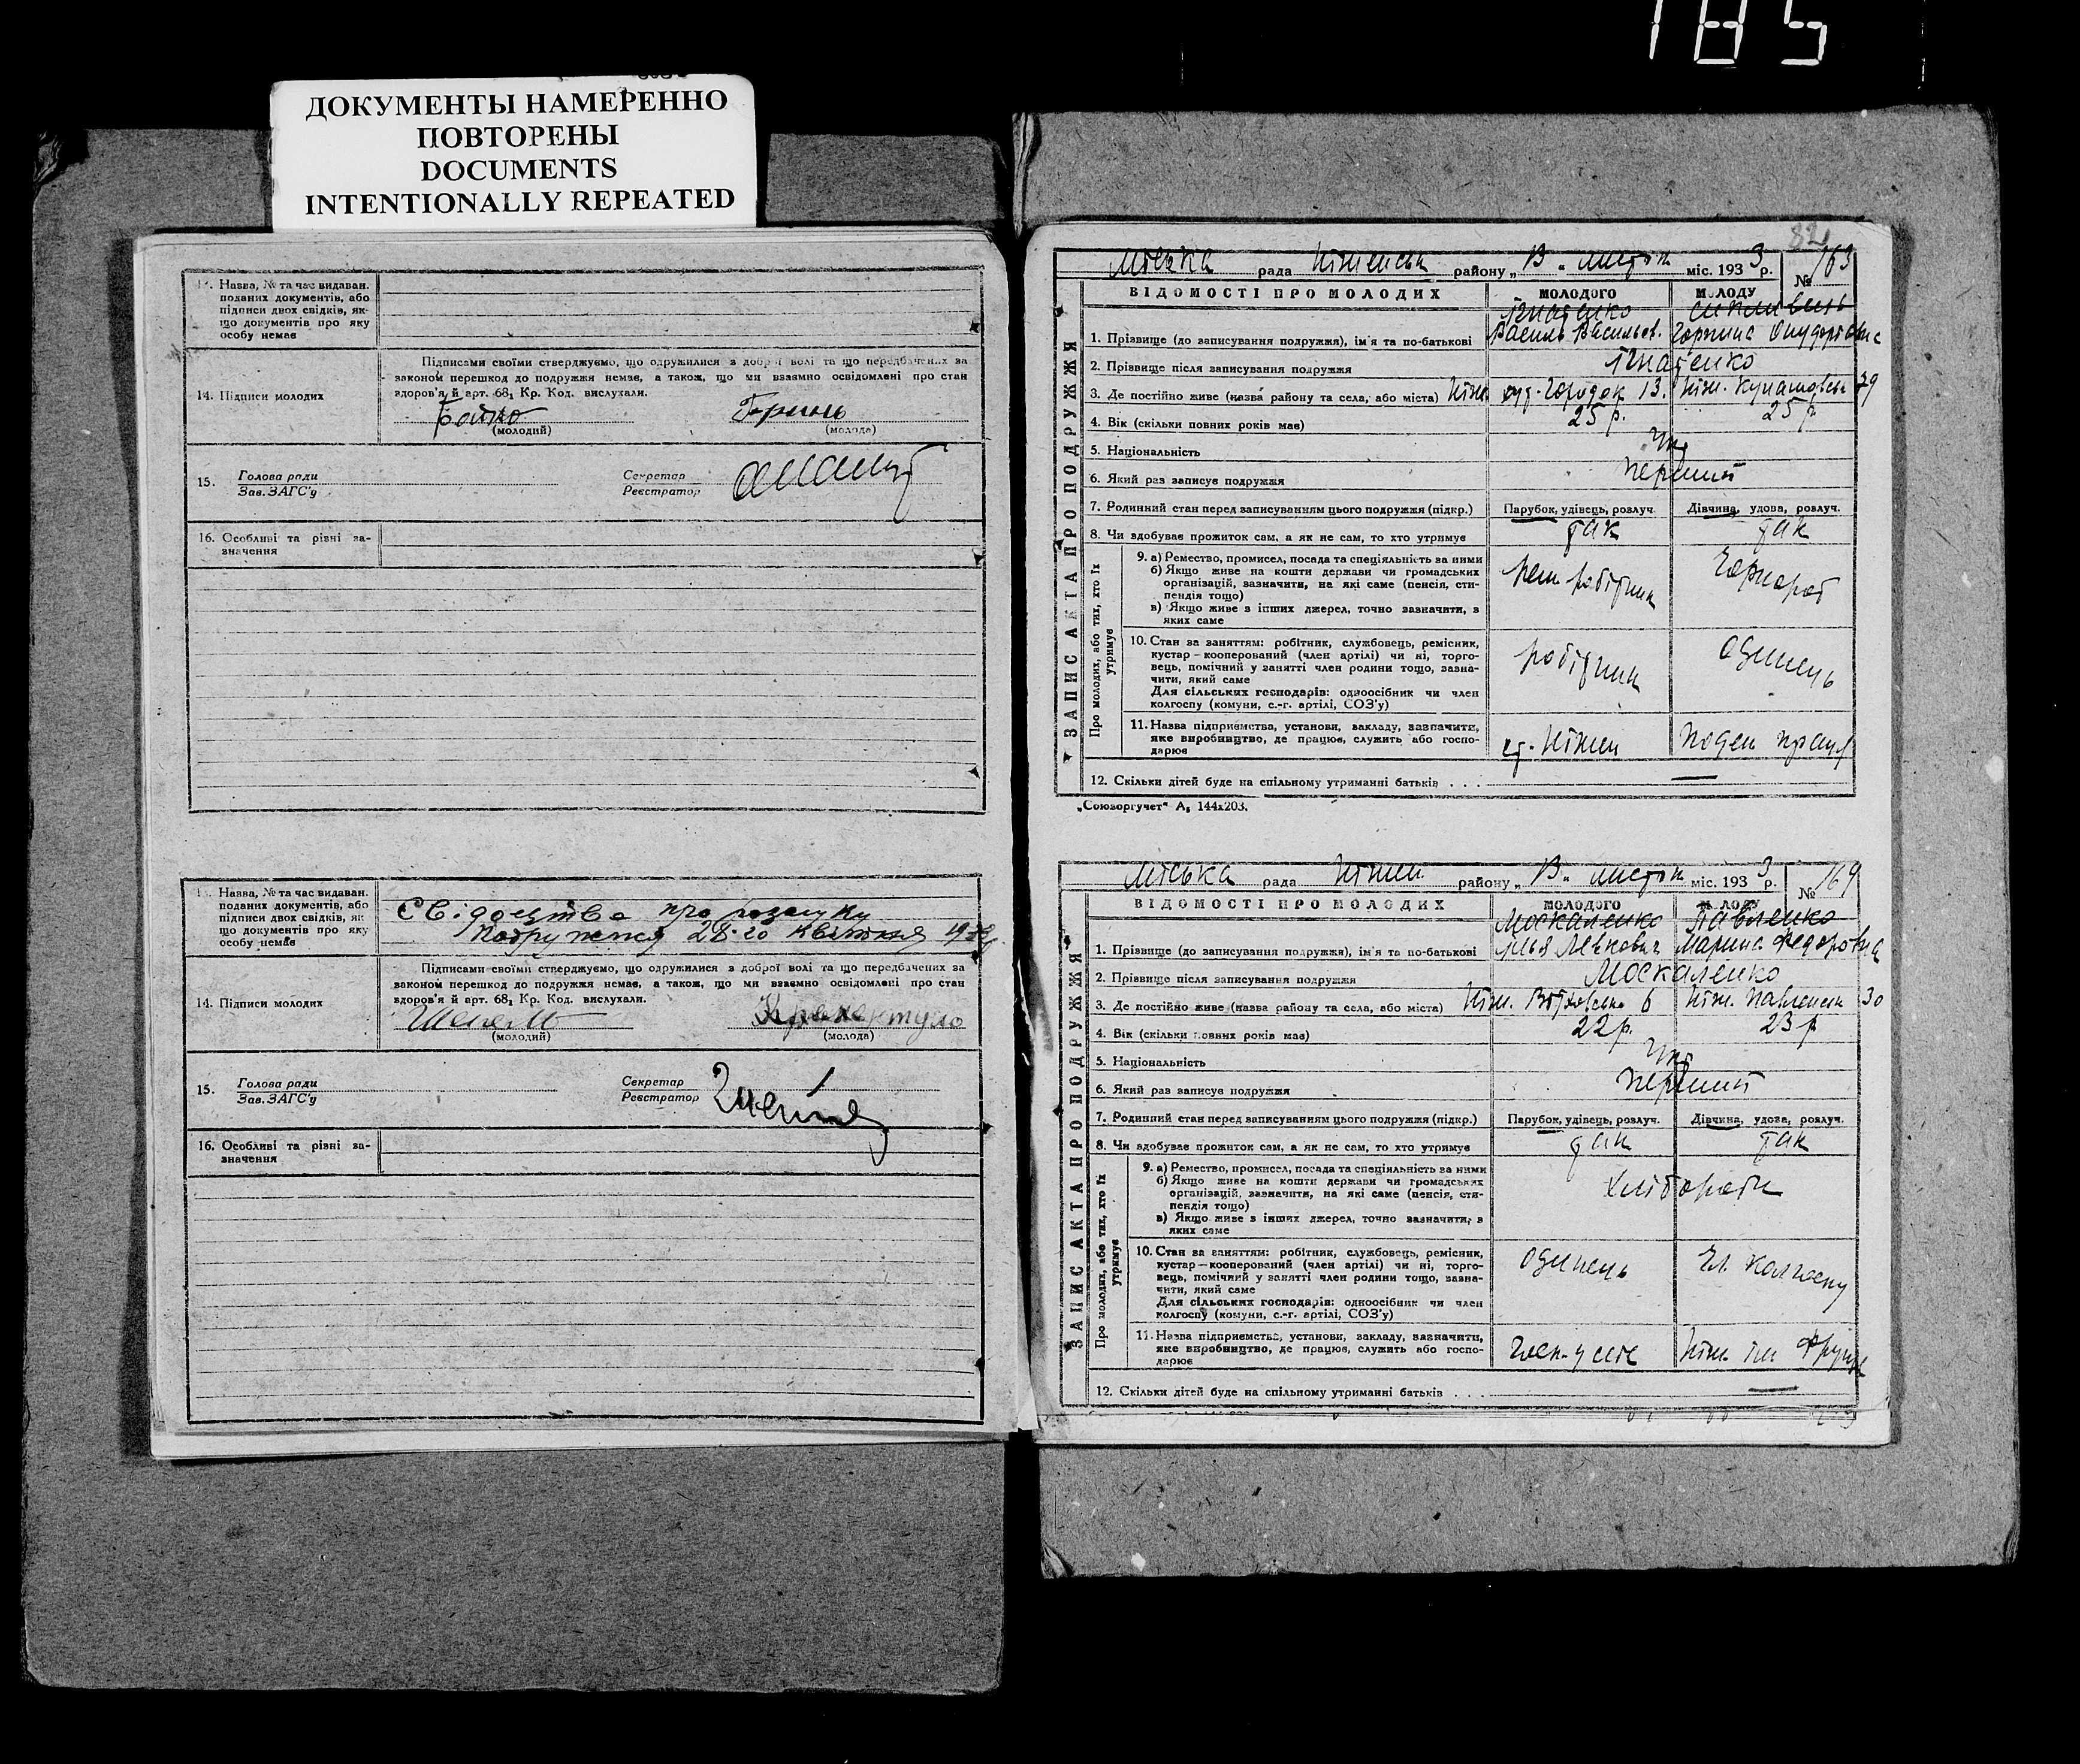 185
ДОКУМЕНТЫ НАМЕРЕННО
ПОВТОРЕНЫ
DOCUMENTS
INTENTIONALLY REPEATED
Назва, № та час видаван.
поданих документів, або
підписи двох свідків, як-
що документів про яку
особу немає
14. Підписи молодих
Підписами своїми стверджуємо, що одружилися з доброї волі та що передбачених за
законом перешкод до подружжя немає, а також, що ми взаємно освідомлені про стан
здоров'я й арт. 68₁ Кр. Код. вислухали.
Бойко
(молодий)
Гринь
(молода)
15. Голова ради
Зав. ЗАГС'у
Секретар
Реєстратор
16. Особливі та рівні за-
значення
Назва, № та час видаван.
поданих документів, або
підписи двох свідків, як
що документів про яку
особу немає
Свідоцтво про розлуку
подружжя 28-го квітня
14. Підписи молодих
Підписами своїми стверджуємо, що одружилися з доброї волі та що передбачених за
законом перешкод до подружжя немає, а також, що ми взаємно освідомлені про стан
здоров'я й арт. 68₁ Кр. Код. вислухали.
(молодий)
(молода)
15. Голова ради
Зав. ЗАГС'у
Секретар
Реєстратор
16. Особливі та рівні за-
значення
82
Міська рада Ніженськ району „13„ листоп міс. 1933 р. № 163
ЗАПИС АКТА ПРО ПОДРУЖЖЯ
ВІДОМОСТІ ПРО МОЛОДИХ
МОЛОДОГО
МОЛОДУ
Ігнатенко
1. Прізвище (до записування подружжя), ім'я та по-батькові
Василь Васильов.
2. Прізвище після записування подружжя
Ігнатенко
3. Де постійно живе (назва району та села, або міста)
Ніж. вул. Городок 13.
Ніж. Кунашовськ 29
4. Вік (скільки повних років має)
25 р.
25 р
5. Національність
Укр
6. Який раз записує подружжя
перший
7. Родинний стан перед записуванням цього подружжя (підкр.)
Парубок, удівець, розлуч.
Дівчина, удова, розлуч.
8. Чи здобуває прожиток сам, а як не сам, то хто утримує
так
так
Про молодих, або тих, хто їх утримує
9. а) Ремество, промисел, посада та спеціяльність за ними
б) Якщо живе на кошти держави чи громадських
організацій, зазначити, на які саме (пенсія, сти-
пендія тощо)
в) Якщо живе з інших джерел, точно зазначити, з
яких саме
рем робітник
Чорнороб
10. Стан за заняттям: робітник, службовець, ремісник,
кустар – кооперований (член артілі) чи ні, торго-
вець, помічний у занятті член родини тощо, зазна-
чити, який саме
Для сільських господарів: одноосібник чи член
колгоспу (комуни, с.-г. артілі, СОЗ'у)
робітник
Одинець
11. Назва підприємства, установи, закладу, зазначити,
яке виробництво, де працює, служить або госпо-
дарює
ст. Ніжен
Поден працує
12. Скільки дітей буде на спільному утриманні батьків . . .
„Союзоргучет“ А₅ 144х203.
Міська рада Ніжен району „13„ листоп міс. 1933 р. № 169
ЗАПИС АКТА ПРО ПОДРУЖЖЯ
ВІДОМОСТІ ПРО МОЛОДИХ
МОЛОДОГО
МОЛОДУ
Москаленко
Павленко
1. Прізвище (до записування подружжя), ім'я та по-батькові
Ілья Левкович
Марина Федоровна
2. Прізвище після записування подружжя
Москаленко
3. Де постійно живе (назва району та села, або міста)
Ніж. 6
Ніж. Павленськ 30
4. Вік (скільки повних років має)
22 р.
23 р
5. Національність
Укр
6. Який раз записує подружжя
перший
7. Родинний стан перед записуванням цього подружжя (підкр.)
Парубок, удівець, розлуч.
Дівчина, удова, розлуч.
8. Чи здобуває прожиток сам, а як не сам, то хто утримує
так
так
Про молодих, або тих, хто їх утримує
9. а) Ремество, промисел, посада та спеціяльність за ними
б) Якщо живе на кошти держави чи громадських
організацій, зазначити, на які саме (пенсія, сти-
пендія тощо)
в) Якщо живе з інших джерел, точно зазначити, з
яких саме
хлібороби
10. Стан за заняттям: робітник, службовець, ремісник,
кустар – кооперований (член артілі) чи ні, торго-
вець, помічний у занятті член родини тощо, зазна-
чити, який саме
Для сільських господарів: одноосібник чи член
колгоспу (комуни, с.-г. артілі, СОЗ'у)
Одинець
Чл. колгоспу
11. Назва підприємства, установи, закладу, зазначити,
яке виробництво, де працює, служить або госпо-
дарює
Ніж. ім Фрунзе
12. Скільки дітей буде на спільному утриманні батьків . . .